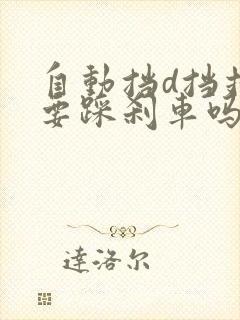 自動挡d挡
要踩刹車吗
達洛尔